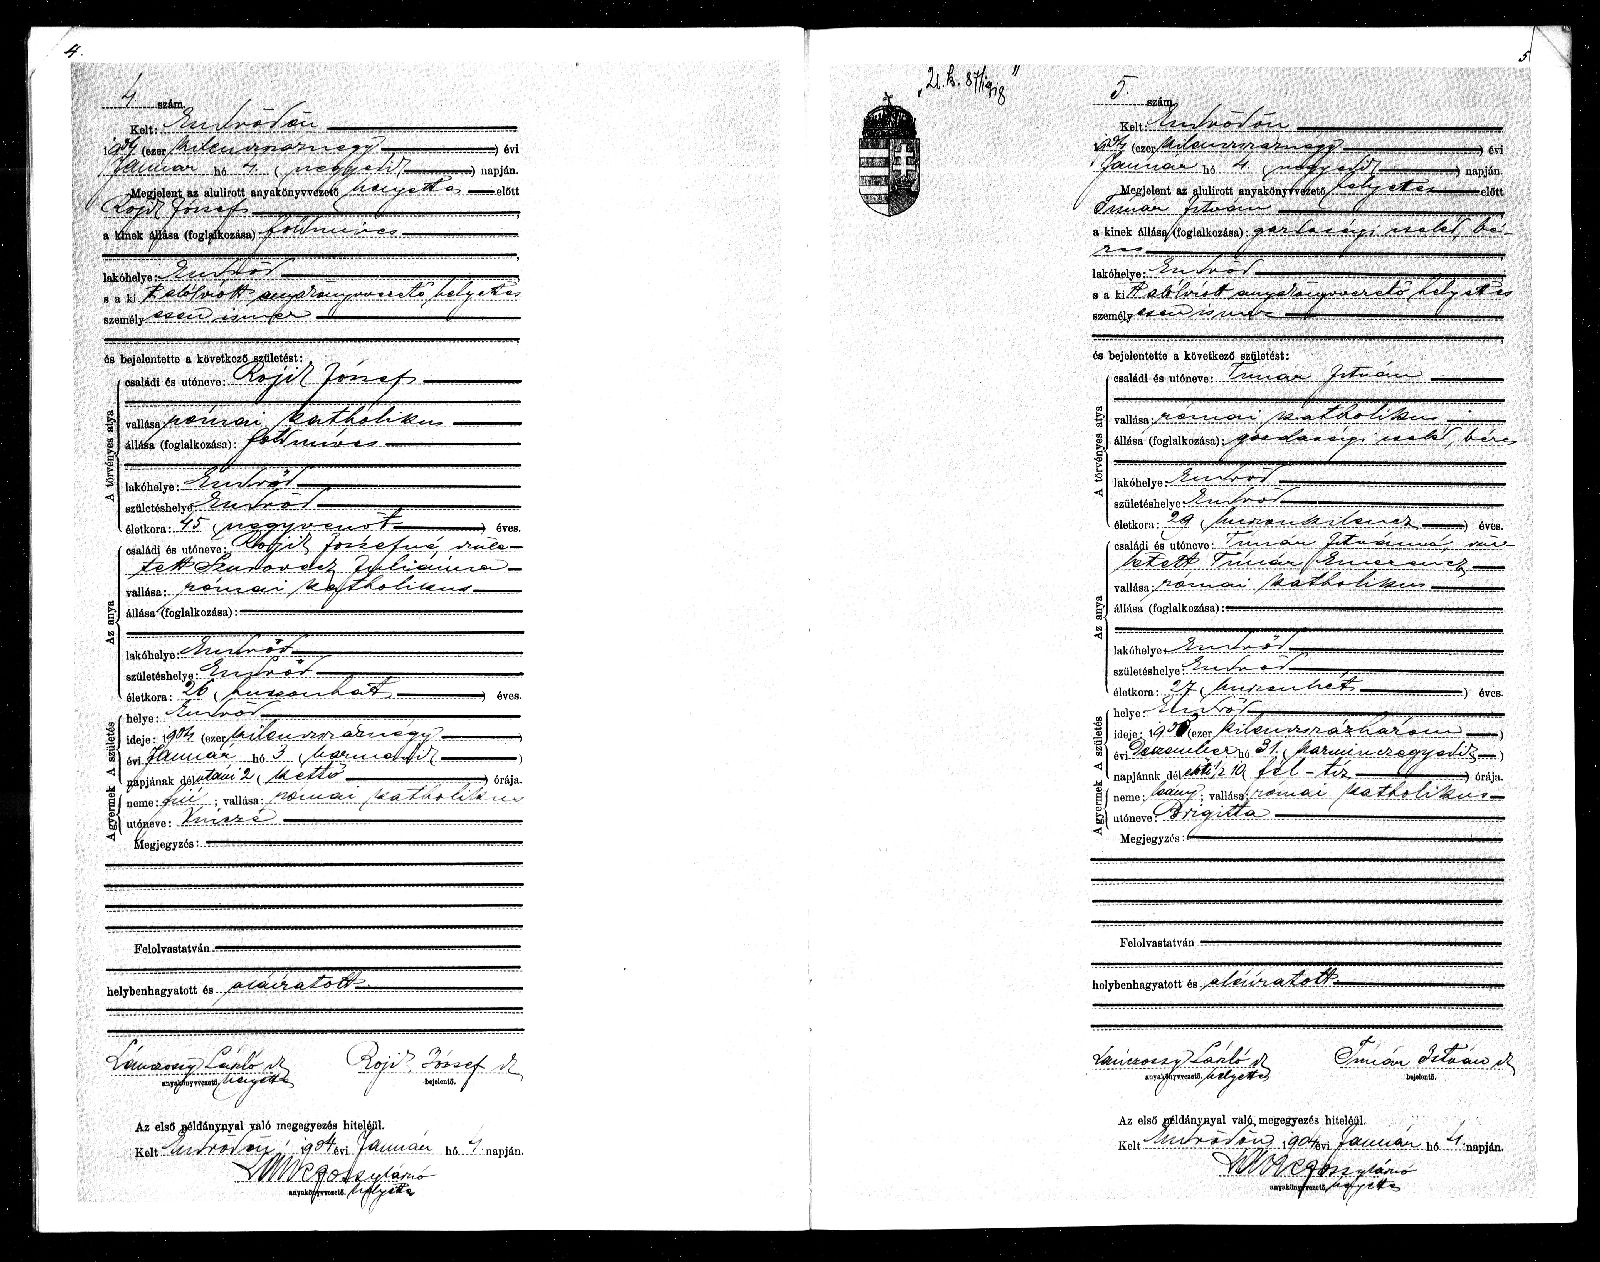 4.
4 szám
Kelt: Endrődön
1904 (ezer kilenczszáznégy) évi
Január hó 4. (negyedik) napján.
Megjelent az alulirott anyakönyvvezető helyettes előtt
Rojik József
a kinek állása (foglalkozása): földmíves
lakóhelye: Endrőd
s a kit alólirott anyakönyvvezető helyettes
személyesen ismer
és bejelentette a következő születést:
A törvényes atya
családi és utóneve: Rojik József
vallása: római katholikus
állása (foglalkozása): földmíves
lakóhelye: Endrőd
születéshelye: Endrőd
életkora: 45 (negyvenöt) éves.
Az anya
családi és utóneve: Rojik Józsefné, szüle-
tett Julianna
vallása: római katholikus
állása (foglalkozása):
lakóhelye: Endrőd
születéshelye: Endrőd
életkora: 26 (huszonhat) éves.
A gyermek A születés
helye: Endrőd
ideje: 1904 (ezer kilenczszáznégy)
évi Január hó 3 (harmadik)
napjának délutáni 2 (kettő) órája.
neme: fiú; vallása: római katholikus
utóneve: Vincze
Megjegyzés:
Felolvastatván
helybenhagyatott és aláiratott
Lánczossy László sk Rojik József sk
anyakönyvvezető. helyettes bejelentő.
Az első példánynyal való megegyezés hiteléül.
Kelt Endrődön, 1904 évi Január hó 4 napján.
Lánczossy László
anyakönyvvezető. helyettes
5
5. szám
Kelt: Endrődön
1904 (ezer kilenczszáznégy) évi
Január hó 4. (negyedik) napján.
Megjelent az alulirott anyakönyvvezető helyettes előtt
Tímár István
a kinek állása (foglalkozása): gazdasági cseléd, bé-
res
lakóhelye: Endrőd
s a kit alólirott anyakönyvvezető helyettes
személyesen ismer
és bejelentette a következő születést:
A törvényes atya
családi és utóneve: Tímár István
vallása: római katholikus
állása (foglalkozása): gazdasági cseléd, béres
lakóhelye: Endrőd
születéshelye: Endrőd
életkora: 29 (huszonkilencz) éves.
Az anya
családi és utóneve: Tímár Istvánné, szü-
letett Tímár Emerencz
vallása: római katholikus
állása (foglalkozása):
lakóhelye: Endrőd
születéshelye: Endrőd
életkora: 27 (huszonhét) éves.
A gyermek A születés
helye: Endrőd
ideje: 1903 (ezer kilenczszázhárom)
évi December hó 31. (harminczegyedik)
napjának délelőtti ½10 (fél-tíz) órája.
neme: leány; vallása: római katholikus
utóneve: Brigitta
Megjegyzés:
Felolvastatván
helybenhagyatott és aláiratott
Lánczossy László sk Tímár István sk
anyakönyvvezető. helyettes bejelentő.
Az első példánynyal való megegyezés hiteléül.
Kelt Endrődön, 1904 évi Január hó 4. napján.
Lánczossy László
anyakönyvvezető. helyettes